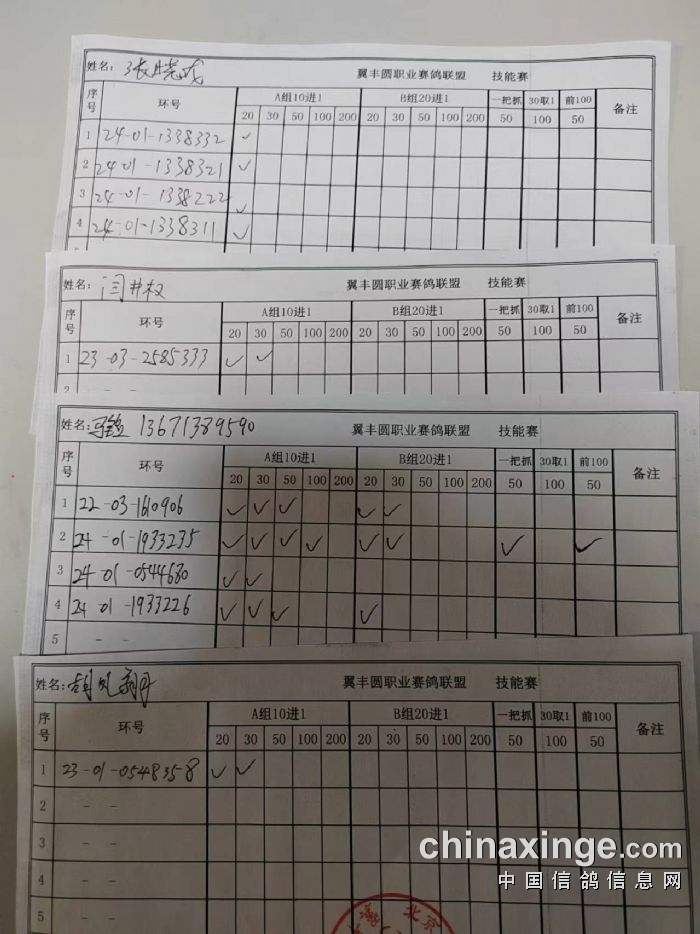 姓名：张晓成 翼丰圆职业赛鸽联盟 技能赛
序号 环号 A组10进1 B组20进1 一把抓 30取1 前100 备注
20 30 50 100 200 20 30 50 100 200 50 100 50
1 24-01-1338332 ✓
2 24-01-1338321 ✓
3 24-01-1338222 ✓
4 24-01-1338311 ✓
姓名：闫井权 翼丰圆职业赛鸽联盟 技能赛
序号 环号 A组10进1 B组20进1 一把抓 30取1 前100 备注
20 30 50 100 200 20 30 50 100 200 50 100 50
1 23-03-2585333 ✓ ✓
2
姓名： 13671389590 翼丰圆职业赛鸽联盟 技能赛
序号 环号 A组10进1 B组20进1 一把抓 30取1 前100 备注
20 30 50 100 200 20 30 50 100 200 50 100 50
1 22-03-1610906 ✓ ✓ ✓ ✓ ✓
2 24-01-1933235 ✓ ✓ ✓ ✓ ✓ ✓ ✓ ✓
3 24-01-0544680 ✓ ✓
4 24 01-1933226 ✓ ✓ ✓ ✓
5 - -
姓名：胡凤翔 翼丰圆职业赛鸽联盟 技能赛
序号 环号 A组10进1 B组20进1 一把抓 30取1 前100 备注
20 30 50 100 200 20 30 50 100 200 50 100 50
1 23-01-0548358 ✓ ✓
2 - -
3 - -
4 - -
5 - -
北京
chinaxinge.com
中国信鸽信息网